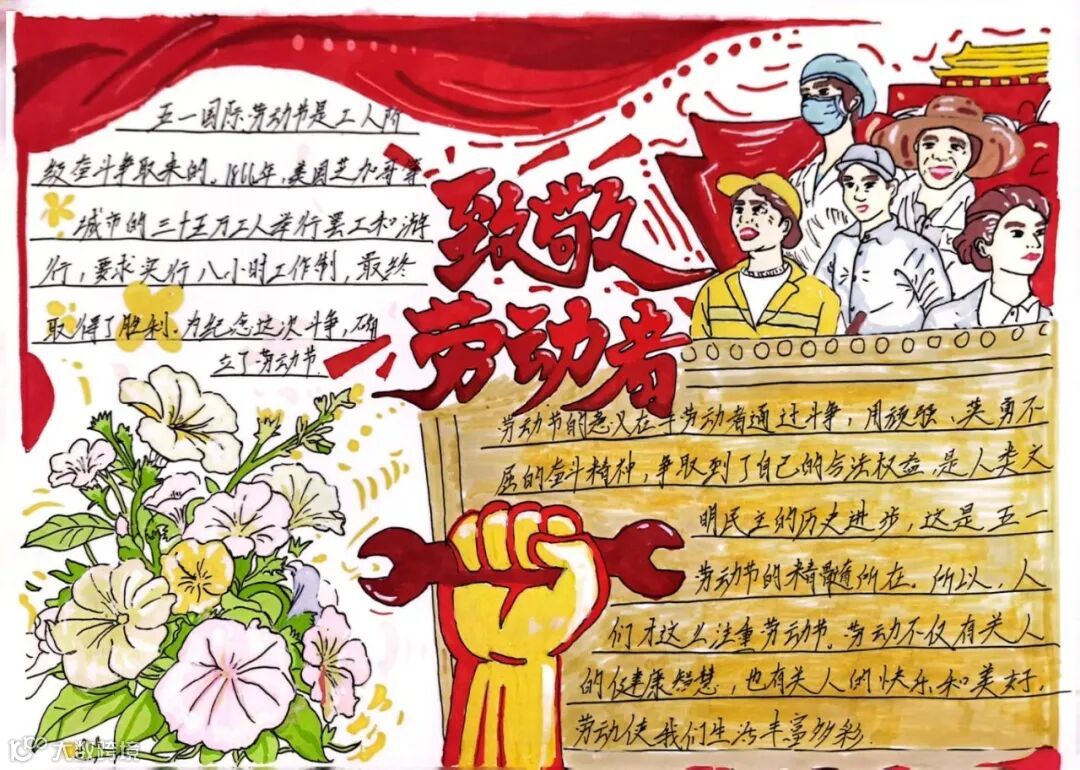 五一国际劳动节是工人阶
级奋斗争取来的。1866年,美国芝加哥等
城市的三十五万工人举行罢工和游
行,要求实行八小时工作制,最终
取得了胜利.为纪念这次斗争,确
立了劳动节.
致敬
劳动者
劳动节的意义在斗劳动者通过斗争,用顽强、英勇不
屈的奋斗精神,争取到了自己的合法权益,是人类文
明民主的历史进步,这是五一
劳动节的精髓所在.所以,人
们才这么注重劳动节.劳动不仅有关人
的健康智慧,也有关人的快乐和美好,
劳动使我们生活丰富多彩.
大数跨境